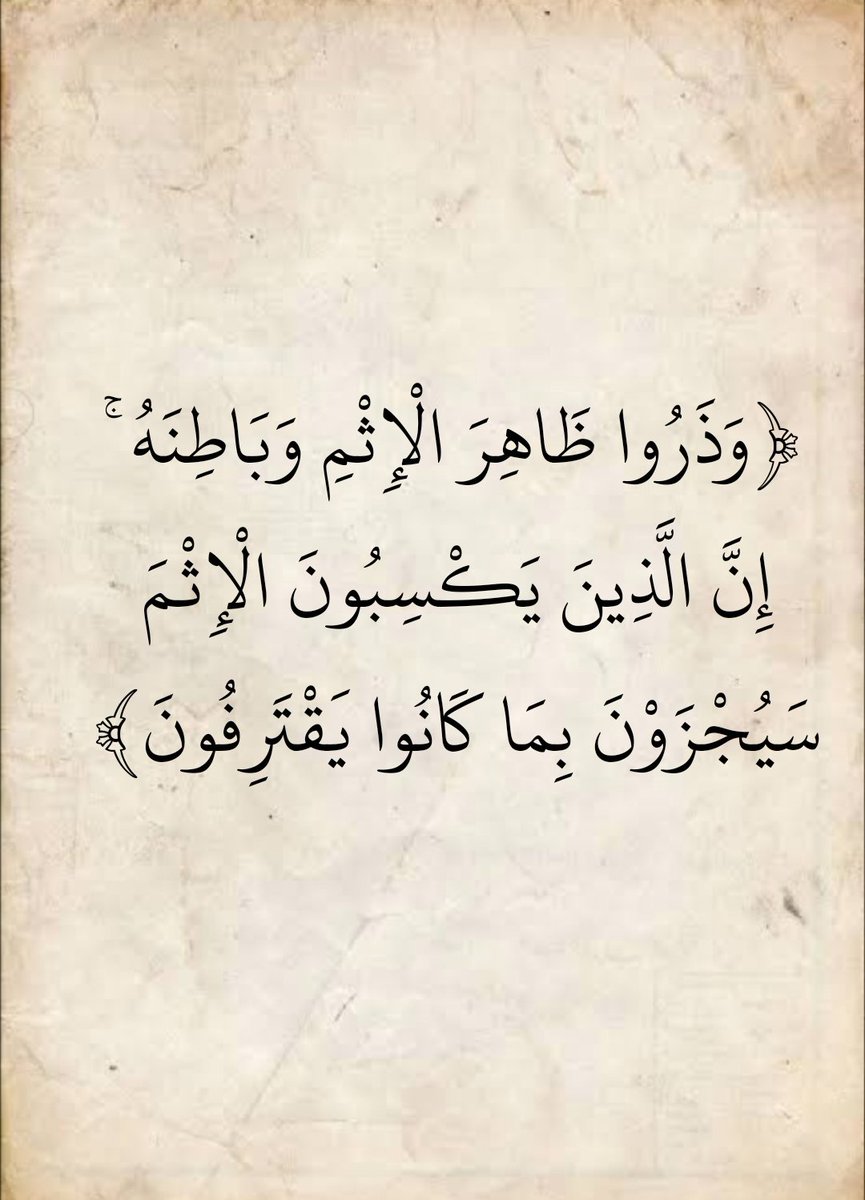 ﴿وَذَرُوا ظَاهِرَ الْإِثْمِ وَبَاطِنَهُ ۚ
إِنَّ الَّذِينَ يَكْسِبُونَ الْإِثْمَ
سَيُجْزَوْنَ بِمَا كَانُوا يَقْتَرِفُونَ﴾